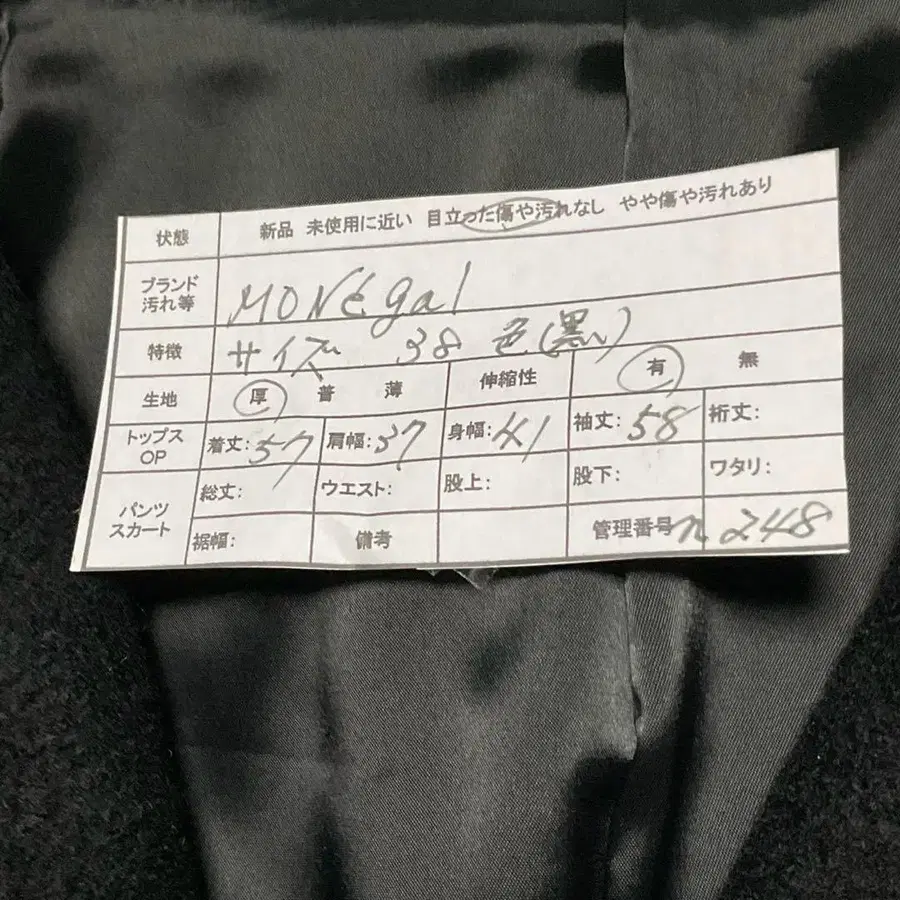 状態 新品 未使用に近い 目立った傷や汚れなし やや傷や汚れあり
ブランド
汚れ等 MONégal
特徴 サイズ 38 色(黒)
生地 厚 普 薄 伸縮性 有 無
トップス
OP 着丈:57 肩幅:37 身幅:41 袖丈:58 裄丈:
パンツ
スカート 総丈: ウエスト: 股上: 股下: ワタリ:
裾幅: 備考 管理番号 n 248